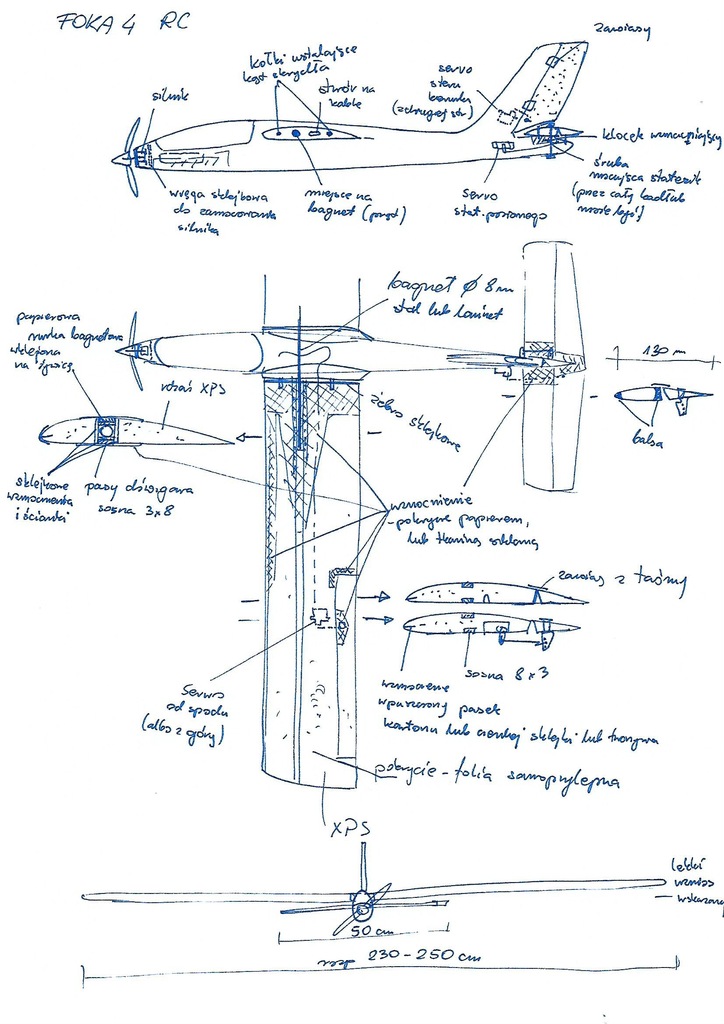 FOKA 4 RC
zawiasy
kołki ustalające
kąt skrzydła
otwór na
kable
servo
steru
kierunku
(z drugiej str)
silnik
klocek wzmacniający
śruba
mocująca statecznik
(przez cały kadłub
może być)
wręga sklejkowa
do zamocowania
silnika
miejsce na
bagnet
servo
stat. poziomego
bagnet ø 8m
stal lub laminat
papierowa
rurka bagnetowa
wklejona
na żywicę
rdzeń XPS
130 m
balsa
żebro sklejkowe
sklejkowe
wzmocnienia
i ścianki
pasy dźwigara
sosna 3x8
wzmocnienie
- pokrycie papierem,
lub tkaniną szklaną
zawias z taśmy
sosna 8x3
Serwo
od spodu
(albo z góry)
wzmocnienie
wpuszczony pasek
kartonu lub cienkiej sklejki lub
pokrycie - folia samoprzylepna
XPS
lekki
wznios
wskazany
50 cm
rozp 230 - 250 cm